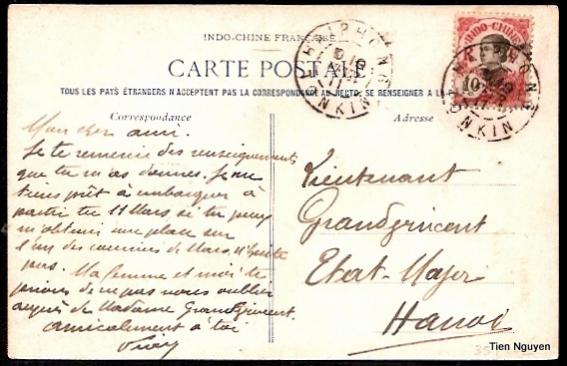 INDO-CHINE FRANÇAISE
CARTE POSTALE
TOUS LES PAYS ÉTRANGERS N'ACCEPTENT PAS LA CORRESPONDANCE AU RECTO, SE RENSEIGNER A LA
Correspondance
Adresse
INDO-CHINE
10
HAIPHONG
TONKIN
HAIPHONG
TONKIN
Mon cher ami.
Je te remercie des renseignements
que tu m'as donnés. Je me
tiens prêt à embarquer à
partir du 11 Mars si tu peux
m'obtenir une place sur
l'un des courriers de Mars, n'hésite
pas. Ma femme et moi te
prions de ne pas nous oublier
auprès de Madame Grandgrincent.
amicalement à toi
Lieutenant
Etat-Major
Hanoi
Tien Nguyen